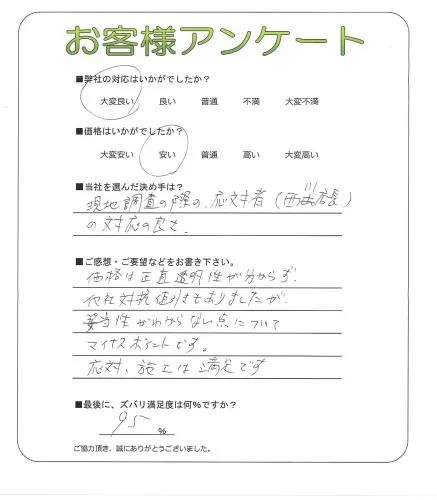 お客様アンケート
■弊社の対応はいかがでしたか？
大変良い 良い 普通 不満 大変不満
■価格はいかがでしたか？
大変安い 安い 普通 高い 大変高い
■当社を選んだ決め手は？
現地調査の際の、応対者（西川店長）
の対応の良さ
■ご感想・ご要望などをお書き下さい。
価格は正直透明性が分からず、
他社対抗値引きもありましたが、
妥当性がわからない点について
マイナスポイントです。
応対、施工は満足です
■最後に、ズバリ満足度は何%ですか？
95 %
ご協力頂き、誠にありがとうございました。